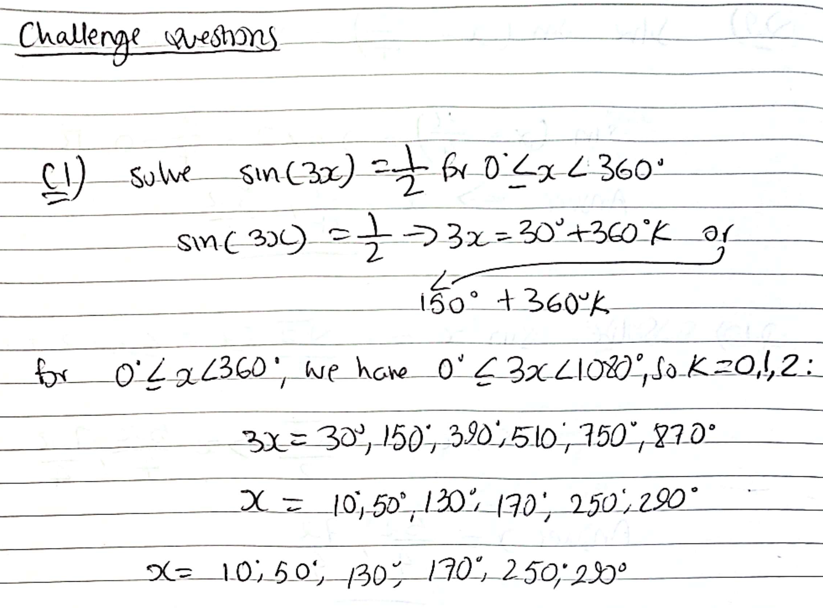 Challenge questions
C1) solve sin(3x) = 1/2 for 0° ≤ x < 360°
sin(3x) = 1/2 → 3x = 30° + 360°K or
150° + 360°K
for 0° ≤ x < 360°, we have 0° ≤ 3x < 1080°, so K = 0, 1, 2:
3x = 30°, 150°, 390°, 510°, 750°, 870°
x = 10°, 50°, 130°, 170°, 250°, 290°
x = 10°, 50°, 130°, 170°, 250°, 290°